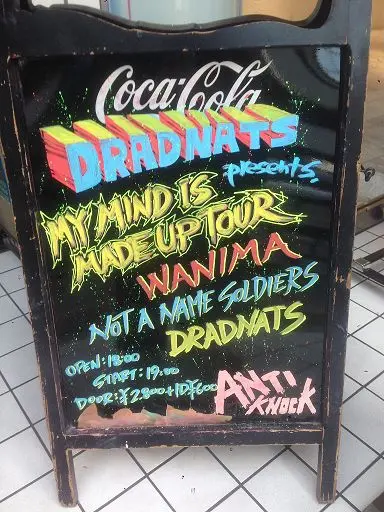 Coca-Cola
DRADNATS
presents.
MY MIND IS
MADE UP TOUR
WANIMA
NOT A NAME SOLDIERS
DRADNATS
OPEN:18:00
START:19:00
DOOR:¥2800+1D¥600
ANTI
KNOCK